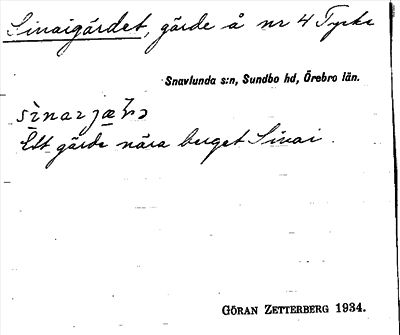 Sinaigärdet, gärde å nr 4 Tyrke
Snavlunda s:n, Sundbo hd, Örebro län.
Ett gärde nära berget Sinai.
GÖRAN ZETTERBERG 1934.